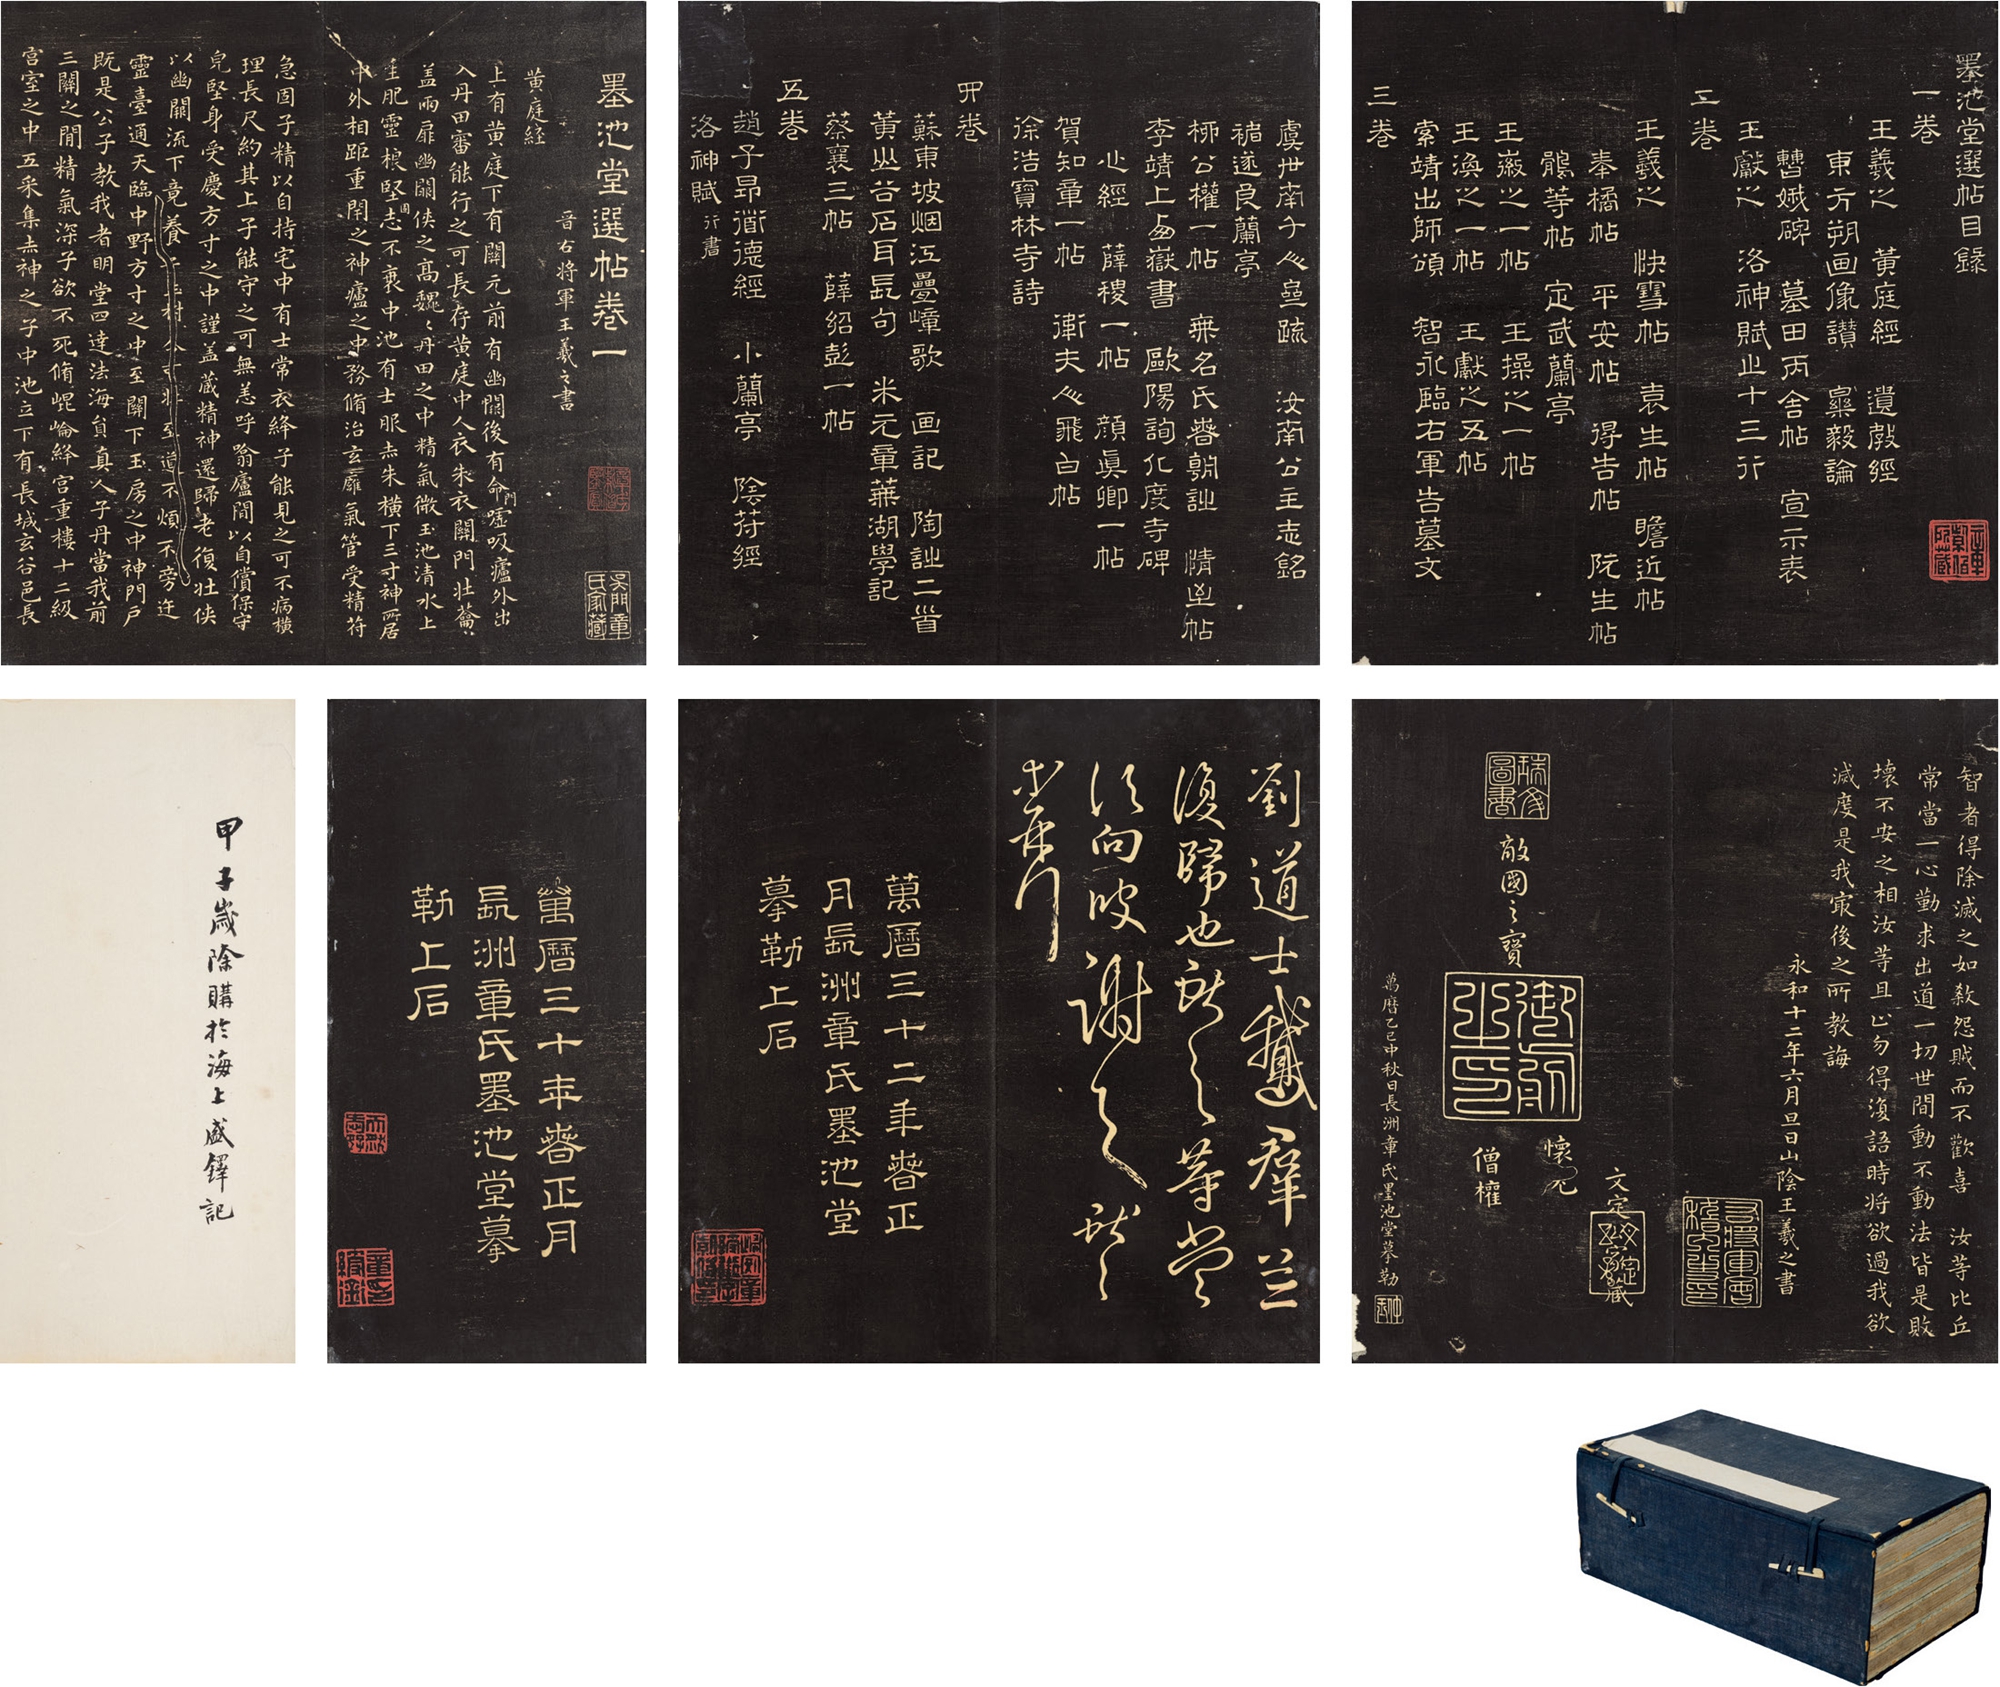 墨池堂選帖目錄
一卷
王羲之 黃庭經 遺敎經
東方朔画像讃 樂毅論
曹娥碑 墓田丙舍帖 宣示表
王獻之 洛神賦止十三行
二卷
王羲之 快雪帖 袁生帖 瞻近帖
奉橘帖 平安帖 得告帖 阮生帖
鵝等帖 定武蘭亭
王薇之一帖 王操之一帖
王渙之一帖 王獻之五帖
索靖出師頌 智永臨右軍告墓文
三卷
虞世南 疏 汝南公主志銘
褚遂良蘭亭
柳公權一帖 無名氏春朝 情 帖
李靖上西嶽書 歐陽詢化度寺碑
心經 薛稷一帖 顏真卿一帖
賀知章一帖 衛夫人飛白帖
徐浩寶林寺詩
四卷
蘇東坡烟江疊嶂歌 画記 陶詘二首
黃山谷石耳長句 米元章蕪湖學記
蔡襄三帖 薛紹彭一帖
五卷
趙子昂道德經 小蘭亭 陰符經
洛神賦行書
墨池堂選帖卷一
吳門章氏家藏
晉右將軍王羲之書
黃庭経
上有黃庭下有關元前有幽闕後有命門噓吸廬外出
入丹田審能行之可長存黃庭中人衣朱衣關門壯蘥
蓋兩扉幽關俠之高魏〻丹田之中精氣微玉池清水上
生肥靈根堅固志不衰中池有士服赤朱橫下三寸神所居
中外相距重閉之神廬之中務脩治玄廱氣管受精符
急固子精以自持宅中有士常衣絳子能見之可不病橫
理長尺約其上子能守之可無恙呼噏廬間以自償保守
皃堅身受慶方寸之中謹蓋藏精神還歸老復壯俠
以幽關流下竟養子玉樹令可壯至道不煩不旁迕
靈臺通天臨中野方寸之中至關下玉房之中神門戶
既是公子教我者明堂四達法海員真人子丹當我前
三關之閒精氣深子欲不死脩崐崘絳宮重樓十二級
宮室之中五采集赤神之子中池立下有長城玄谷邑長
智者得除滅之如殺怨賊而不歡喜 汝等比丘
常當一心勤求出道一切世間動不動法皆是敗
壞不安之相汝等且止勿得復語時将欲過我欲
滅度是我最後之所教誨
永和十二年六月旦日山陰王羲之書
右將軍會稽內史印
文定
懷充
僧權
敵國之寶
御府之印
萬曆乙巳中秋日長洲章氏墨池堂摹勒
劉道士鵝羣並
復歸也獻之等當
須向彼謝之獻之
萬曆三十二年春正
月長洲章氏墨池堂
摹勒上石
萬曆三十年春正月
長洲章氏墨池堂摹
勒上石
甲子歲除購於海上盛鐸記